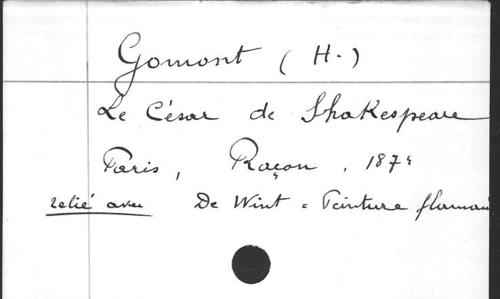 Gomont (H.)
Le César de Shakespeare
Paris, Raçon, 1874
relié avec De Wint = Peinture flaman